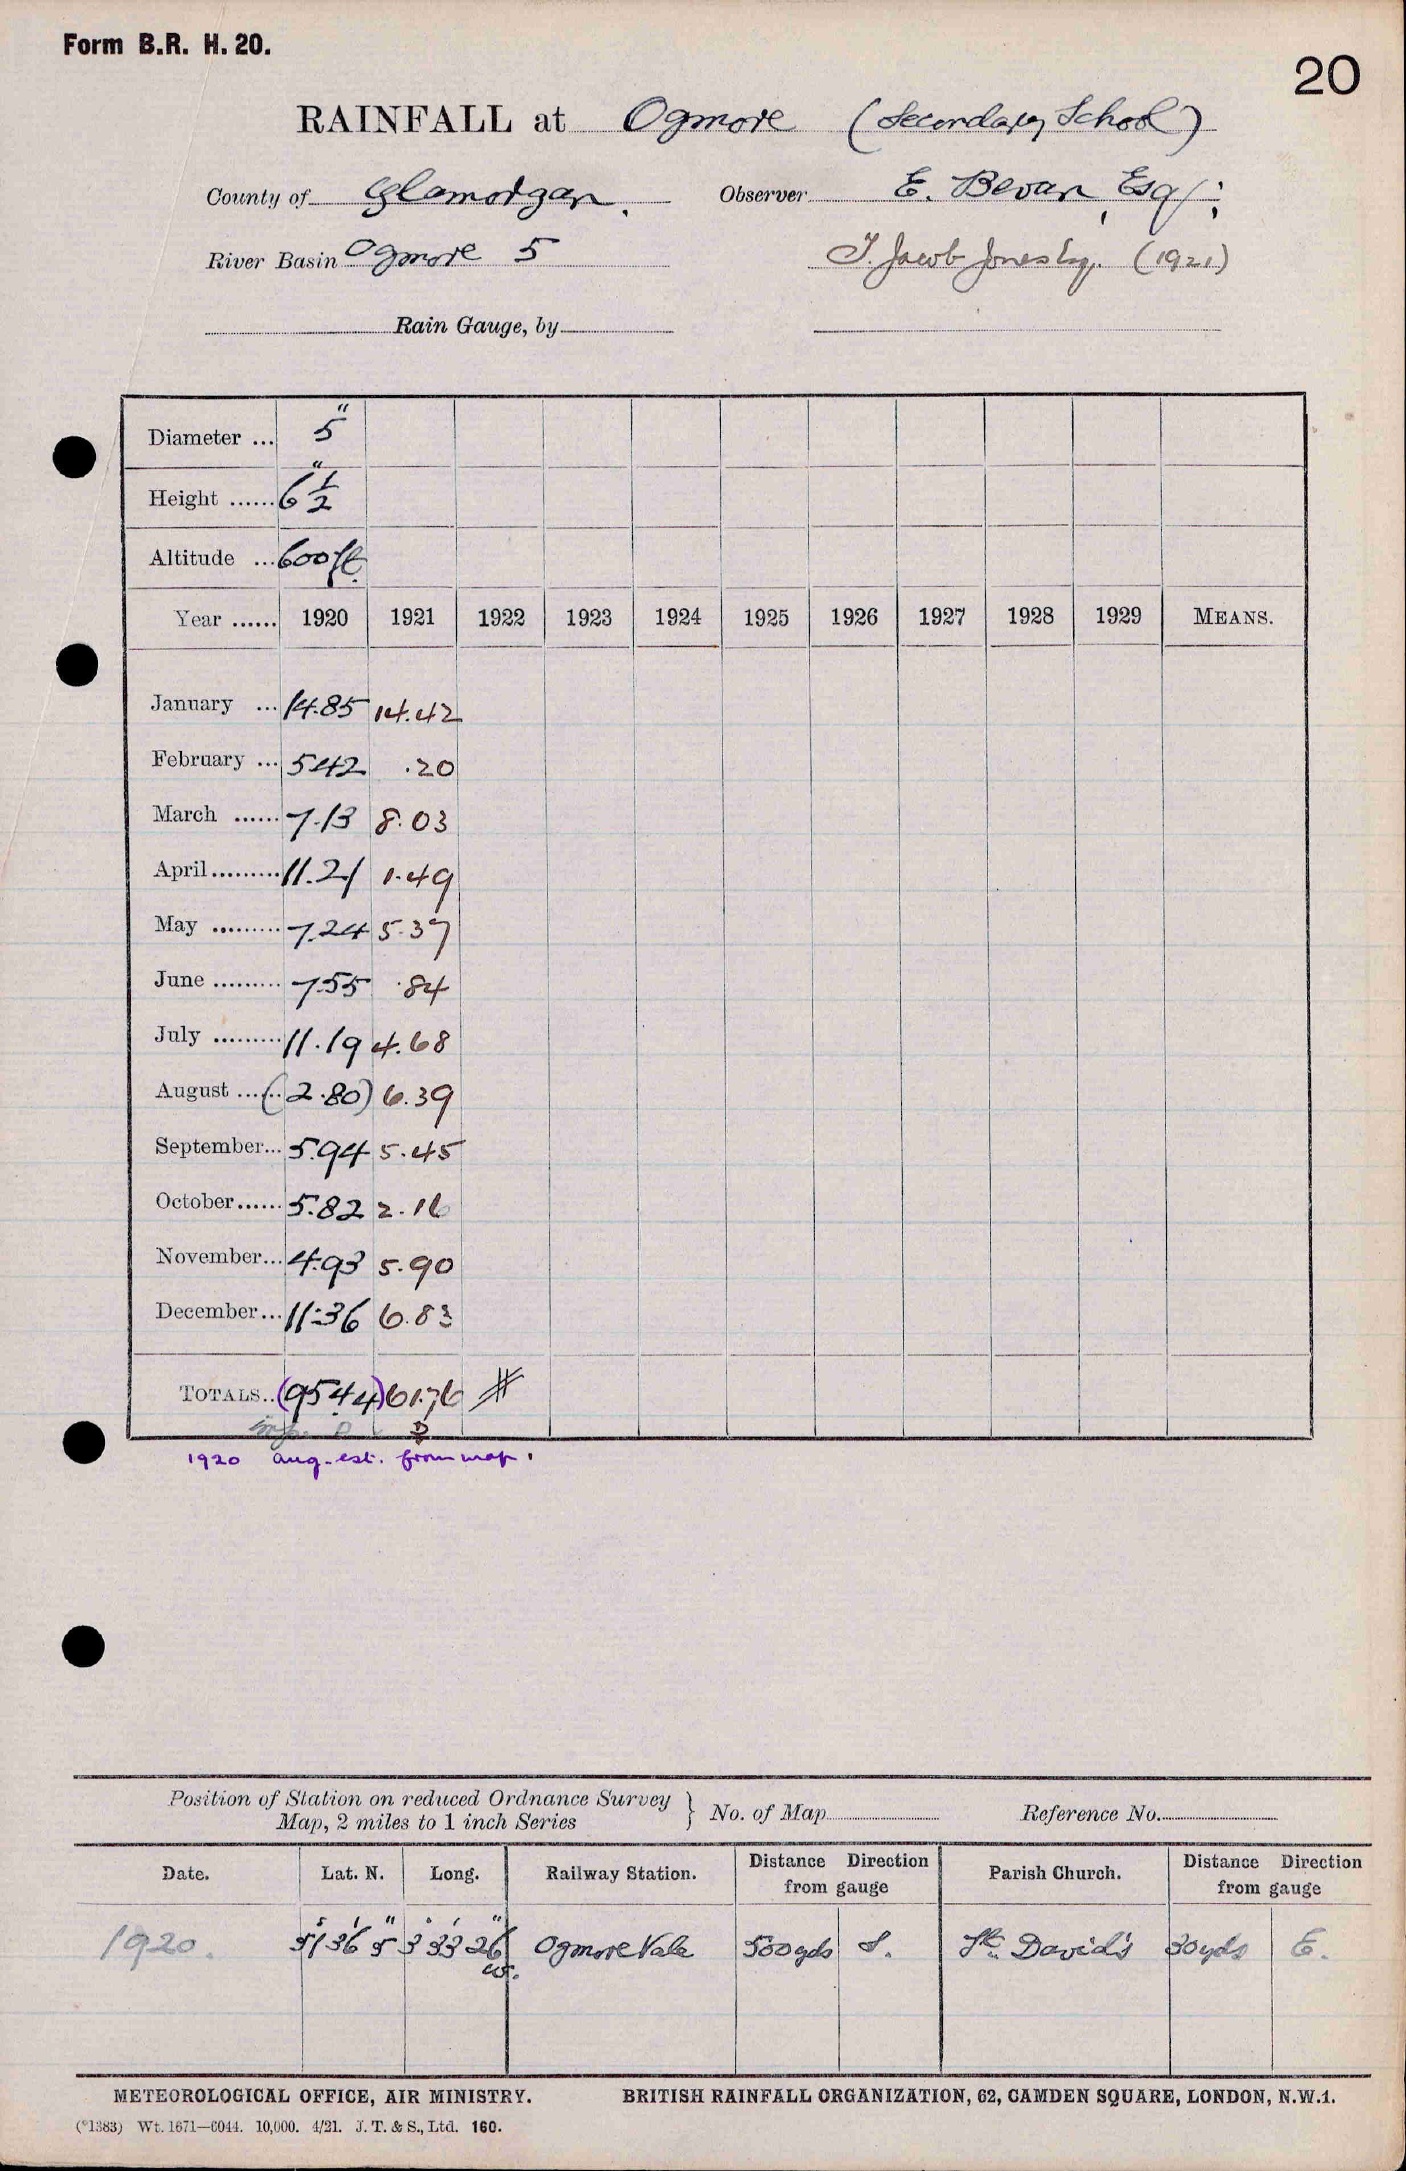 Form B.R. H. 20.
20
RAINFALL at Ogmore (Secondary School)
County of Glamorgan. Observer E. Bevan, Esq;
River Basin Ogmore 5 T. Jacob Jones Esq. (1921)
Rain Gauge, by
Diameter ... 5"
Height ...... 6 1/2"
Altitude ... 600 ft.
Year ...... 1920 1921 1922 1923 1924 1925 1926 1927 1928 1929 MEANS.
January ... 14.85 14.42
February ... 5.42 .20
March ...... 7.13 8.03
April ......... 11.21 1.49
May ......... 7.24 5.37
June ......... 7.55 .84
July ......... 11.19 4.68
August ...... (2.80) 6.39
September... 5.94 5.45
October...... 5.82 2.16
November... 4.93 5.90
December... 11.36 6.83
TOTALS.. (95.44) 61.76 #
1920 Aug. est. from map.
Position of Station on reduced Ordnance Survey
Map, 2 miles to 1 inch Series } No. of Map Reference No.
Date. Lat. N. Long. Railway Station. Distance Direction from gauge Parish Church. Distance Direction from gauge
1920. 51° 36' 5" 3° 33' 26" W. Ogmore Vale 500 yds S. St. David's 30 yds E.
METEOROLOGICAL OFFICE, AIR MINISTRY. BRITISH RAINFALL ORGANIZATION, 62, CAMDEN SQUARE, LONDON, N.W.1.
(*1383) Wt. 1671—6044. 10,000. 4/21. J. T. & S., Ltd. 160.